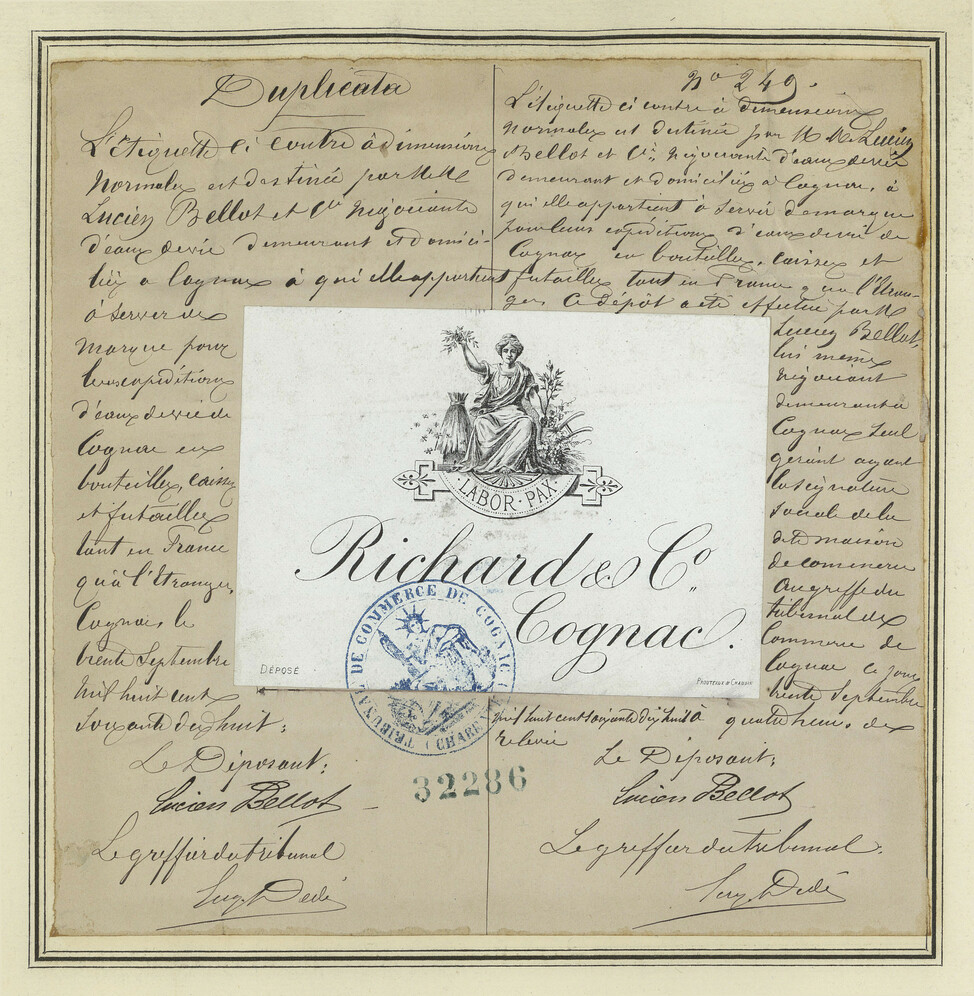 Duplicata
L'étiquette ci contre à dimensions
normales est destinée par MM
Lucien Bellot et Cie négociants
d'eaux de vie demeurant et domici-
liés a Cognac à qui elle appartient
à servir de
marque pour
les expéditions
d'eaux de vie de
Cognac en
bouteilles, caisses
et futailles
tant en France
qu'à l'Etranger.
Cognac le
trente Septembre
mil huit cent
soixante dix huit;
Le Déposant;
Lucien Bellot
Le greffier du tribunal
Eug. Dedé
No 249.
L'étiquette ci contre à dimensions
normales est destinée par M M. Lucien
Bellot et Cie, négociants d'eaux de vie
demeurant et domiciliés à Cognac, à
qui elle appartient à servir de marque
pour leurs expéditions d'eaux de vie de
Cognac en bouteilles, caisses et
futailles tant en France qu'a l'Etran-
ger. Ce dépôt a été effectué par M
Lucien Bellot,
lui même
négociant
demeurant a
Cognac seul
gérant ayant
la signature
sociale de la
dite maison
de commerce
au greffe du
tribunal de
Commerce de
Cognac ce jour
trente Septembre
mil huit cent soixante dix huit à quatre heures de
relevée
Le Déposant;
Lucien Bellot
Le greffier du tribunal.
Eug. Dedé
LABOR · PAX
Richard & Co
Cognac.
DÉPOSÉ
TRIBUNAL DE COMMERCE DE COGNAC (CHARENTE)
32286